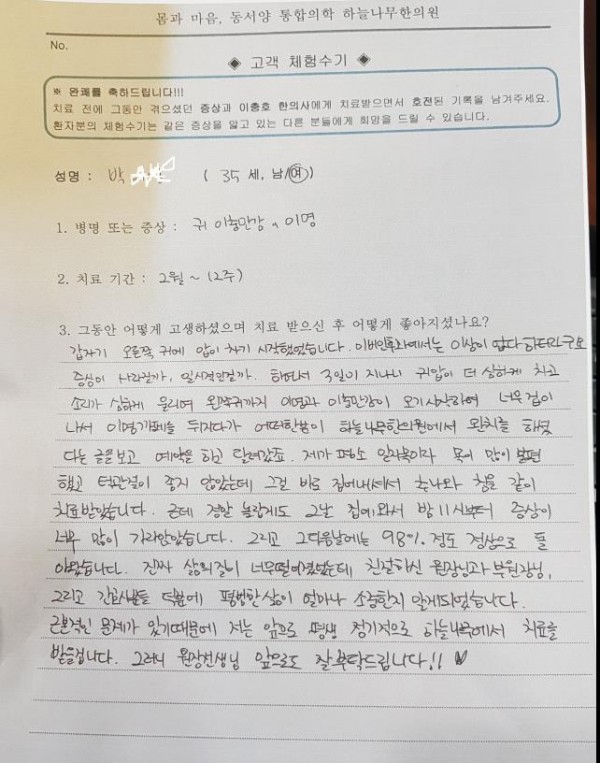 몸과 마음, 동서양 통합의학 하늘나무한의원
No.
◈ 고객 체험수기 ◈
※ 완쾌를 축하드립니다!!!
치료 전에 그동안 겪으셨던 증상과 이충호 한의사에게 치료받으면서 호전된 기록을 남겨주세요.
환자분의 체험수기는 같은 증상을 앓고 있는 다른 분들에게 희망을 드릴 수 있습니다.
성명 : 박 ( 35 세, 남/여)
1. 병명 또는 증상 : 귀 이충만감 & 이명
2. 치료 기간 : 2월 ~ (2주)
3. 그동안 어떻게 고생하셨으며 치료 받으신 후 어떻게 좋아지셨나요?
갑자기 오른쪽 귀에 압이 차기 시작했었습니다. 이비인후과에서는 이상이 없다 하더라구요
증상이 사라질까, 일시적인걸까. 하면서 3일이 지나니 귀압이 더 심하게 차고
소리가 심하게 울리며 왼쪽귀까지 이명과 이충만감이 오기시작하여 너무 겁이
나서 이명카페를 뒤지다가 어떠한분이 하늘나무한의원에서 완치를 해셨
다는 글을 보고 예약을 하고 달려갔죠. 제가 평소 일자목이라 목이 많이 불편
했고 턱관절이 좋지 않았는데 그걸 바로 집어내셔서 추나와 침을 같이
치료받았습니다. 근데 정말 놀랍게도 그날 집에와서 밤 11시부터 증상이
너무 많이 가라앉았습니다. 그리고 그다음날에는 98% 정도 정상으로 돌
아왔습니다. 진짜 삶의질이 너무떨어졌었는데 친절하신 원장님과 부원장님,
그리고 간호사분들 덕분에 평범한 삶이 얼마나 소중한지 알게되었습니다.
근본적인 문제가 있기때문에 저는 앞으로 평생 정기적으로 하늘나무에서 치료를
받을겁니다. 그러니 원장선생님 앞으로도 잘부탁드립니다!! ♥